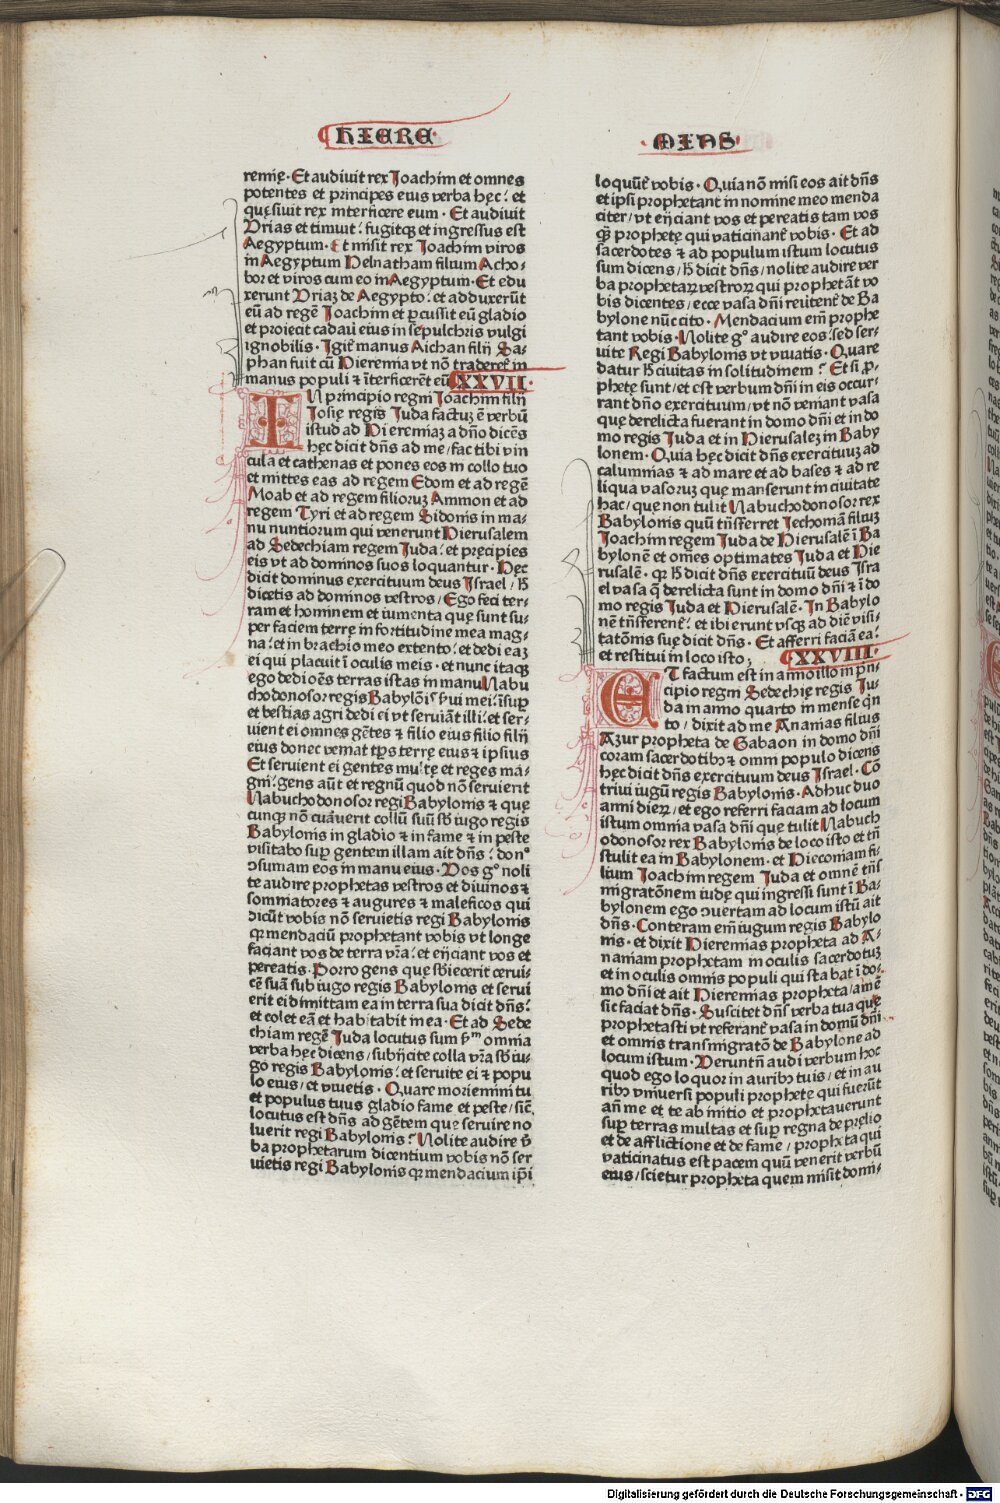 HIERE
MIAS
remię · Et audiuit rex Joachim et omnes
potentes et principes eius verba hęc : et
quęsiuit rex interficere eum · Et audiuit
Vrias et timuit : fugitqȝ et ingressus est
Aegyptum · Et misit rex Joachim viros
in Aegyptum Helnatham filium Acho-
bor et viros cum eo in Aegyptum · Et edu
xerunt Vriaȝ de Aegypto : et adduxerūt
eū ad regē Joachim et ꝑcussit eū gladio
et proiecit cadaū eius in sepulchris vulgi
ignobilis · Igit᷑ manus Aichan filij Sa-
phan fuit cū Hieremia vt nō traderet᷑ in
manus populi ⁊ īterficerēt eū XXVII ·
IN principio regni Joachim filij
Josię regis Juda factuȝ ē verbū
istud ad Hieremiaȝ a dño dicēs
hęc dicit dñs ad me / fac tibi vin
cula et cathenas et pones eos in collo tuo
et mittes eas ad regem Edom et ad regē
Moab et ad regem filioruȝ Ammon et ad
regem Tyri et ad regem Sidonis in ma-
nu nuntiorum qui venerunt Hierusalem
ad Sedechiam regem Juda : et pręcipies
eis vt ad dominos suos loquantur · Hęc
dicit dominus exercituum deus Israel / h̄
dicetis ad dominos vestros / Ego feci ter-
ram et hominem et iumenta quę sunt su-
per faciem terrę in fortitudine mea mag-
na : et in brachio meo extento : et dedi eaȝ
ei qui placuit ī oculis meis · et nunc itaqȝ
ego dedi oēs terras istas in manu Nabu
chodonosor regis Babylōis ẜui mei : īsuꝑ
et bestias agri dedi ei vt seruiāt illi : et ser-
uient ei omnes gētes ⁊ filio eius ⁊ filio filij
eius donec veniat tꝑs terrę eius ⁊ ipsius
Et seruient ei gentes multę et reges ma-
gni · gens aūt et regnū quod nō seruierit
Nabuchodonosor regi Babylonis ⁊ quę
cunqȝ nō curāuerit collū suū sb̄ iugo regis
Babylonis in gladio ⁊ in fame ⁊ in peste
visitabo suꝑ gentem illam ait dñs : donᵒ
ↄsumam eos in manu eius · Vos gᵒ noli
te audire prophetas vestros et diuinos ⁊
somniatores ⁊ augures ⁊ maleficos qui
dicūt vobis nō seruietis regi Babylonis
qꝛ mendaciū prophetant vobis vt longe
faciant vos de terra vr̄a : et eijciant vos et
pereatis · Porro gens quę sb̄iecerit cerui-
cē suā sub iugo regis Babylonis et serui
erit ei dimittam ea in terra sua dicit dñs :
et colet eā et habitabit in ea · Et ad Sede
chiam regē Juda locutus sum ẜm omnia
verba hęc dicens / subijcite colla vr̄a sb̄ iu-
go regis Babylonis : et seruite ei ⁊ popu
lo eius / et viuetis · Quare moriemini tu
et populus tuus gladio fame et peste / sič
locutus est dñs ad gētem quę seruire no
luerit regi Babylonis ? Nolite audire ṽ
ba prophetarum dicentium vobis nō ser
uietis regi Babylonis qꝛ mendacium ip̄i
loquūt᷑ vobis · Quia nō misi eos ait dñs
et ipsi prophetant in nomine meo menda
citer / vt eijciant vos et pereatis tam vos
qȝ prophetę qui vaticinant᷑ vobis · Et ad
sacerdotes ⁊ ad populum istum locutus
sum dicens / h̄ dicit dñs / nolite audire ver
ba prophetaꝝ vestroꝝ qui prophetāt vo
bis dicentes / ecce vasa dñi reūtent᷑ de Ba
bylone nūc cito · Mendacium em̄ prophe
tant vobis · Nolite gᵒ audire eos : sed ser-
uite Regi Babylonis vt viuatis · Quare
datur h̄ ciuitas in solitudinem ? Et si ꝓ-
phetę sunt / et est verbum dñi in eis occur-
rant dño exercituum / vt nō veniant vasa
quę derelicta fuerant in domo dñi et in do
mo regis Juda et in Hierusaleȝ in Baby
lonem · Quia hęc dicit dñs exercituuȝ ad
calumnias ⁊ ad mare et ad bases ⁊ ad re
liqua vasoruȝ quę manserunt in ciuitate
hac / quę non tulit Nabuchodonosor rex
Babylonis quū trn̄sferret Jechoniā filiuȝ
Joachim regem Juda de Hierusalē ī Ba
bylonē et omēs optimates Juda et Hie
rusalē · qꝛ h̄ dicit dñs exercituū deus Isra
el vasa q̄ derelicta sunt in domo dñi ⁊ ī do
mo regis Juda et Hierusalē · In Babylo
nē trn̄sferent᷑ · et ibi erunt vsqȝ ad diē visi-
tatōnis suę dicit dñs · Et afferri faciā ea :
et restitui in loco isto ; XXVIII ·
ET factum est in anno illo in prin-
cipio regni Sedechię regis Ju-
da in anno quarto in mense qͥn
to / dixit ad me Ananias filius
Azur propheta de Gabaon in domo dñi
coram sacerdotibȝ ⁊ omni populo dicens
hęc dicit dñs exercituum deus Israel · Cō
triui iugū regis Babylonis · Adhuc duo
anni dieꝝ / et ego referri faciam ad locum
istum omnia vasa dñi quę tulit Nabuch
odonosor rex Babylonis de loco isto et trn̄
stulit ea in Babylonem · et Hieconiam fi-
lium Joachim regem Juda et omnē trn̄s
migratōnem iudę qui ingressi sunt ī Ba-
bylonem ego ↄuertam ad locum istū ait
dñs · Conteram em̄ iugum regis Babylo
nis · et dixit Hieremias propheta ad A-
naniam prophetam in oculis sacerdotuȝ
et in oculis omnis populi qui stabat ī do-
mo dñi et ait Hieremias propheta / amē
sic faciat dñs · Suscitet dñs verba tua quę
prophetasti vt referant᷑ vasa in domū dñi
et omnis transmigratō de Babylone ad
locum istum · Veruntn̄ audi verbum hoc
quod ego loquor in auribȝ tuis / et in au
ribȝ vniuersi populi prophetę qui fuerūt
añ me et te ab initio et prophetauerunt
suꝑ terras multas et suꝑ regna de prelio
et de afflictione et de fame / propheta qui
vaticinatus est pacem quū venerit verbū
eius / scietur propheta quem misit domi-
Digitalisierung gefördert durch die Deutsche Forschungsgemeinschaft · DFG